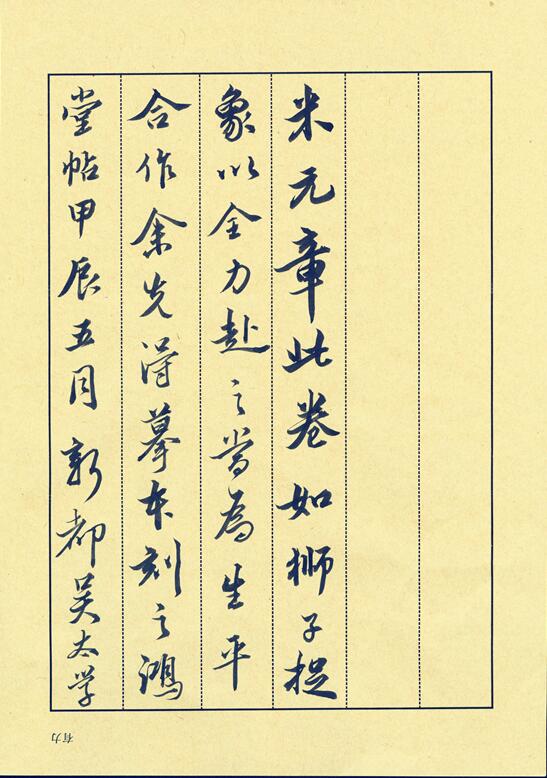 米元章此卷如狮子捉
象以全力赴之当为生平
合作余先得摹本刻之鸿
堂帖甲辰五月新都吴太学
有力